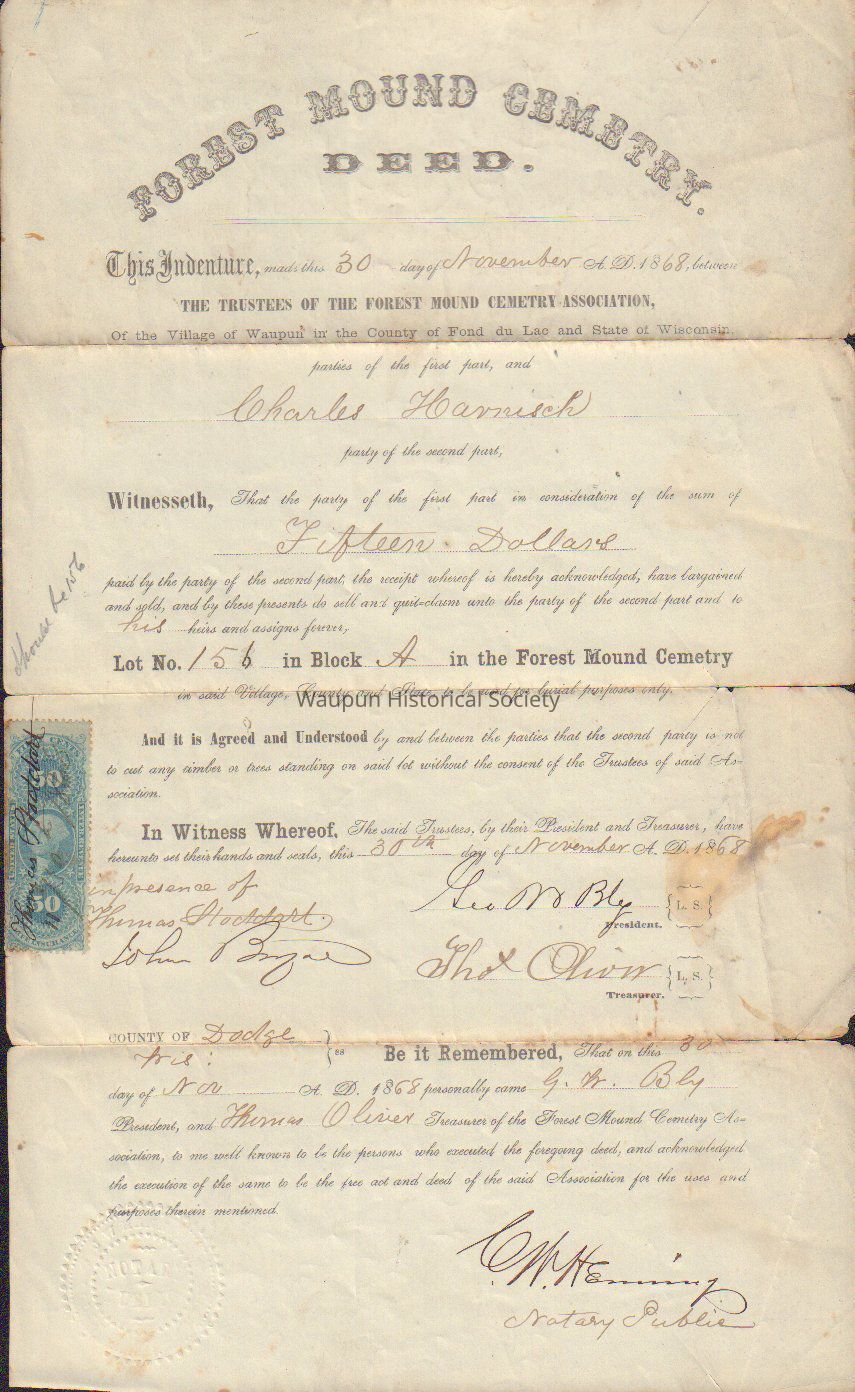 FOREST MOUND CEMETRY.
DEED.
This Indenture, made this 30 day of November A. D. 1868, between
THE TRUSTEES OF THE FOREST MOUND CEMETRY ASSOCIATION,
Of the Village of Waupun in the County of Fond du Lac and State of Wisconsin,
parties of the first part, and
Charles Harnisch
party of the second part,
Witnesseth, That the party of the first part in consideration of the sum of
Fifteen Dollars
paid by the party of the second part, the receipt whereof is hereby acknowledged, have bargained
and sold, and by these presents do sell and quit-claim unto the party of the second part and to
his heirs and assigns forever,
should be 156
Lot No. 156 in Block A in the Forest Mound Cemetry
in said Village, County and State, to be used for burial purposes only.
Waupun Historical Society
And it is Agreed and Understood by and between the parties that the second party is not
to cut any timber or trees standing on said lot without the consent of the Trustees of said As-
sociation.
In Witness Whereof, The said Trustees, by their President and Treasurer, have
hereunto set their hands and seals, this 30th day of November A. D. 1868
Thomas Stoddart
50 50
INSURANCE
in presence of
Thomas Stoddart.
John
Geo W Bly {L. S.}
President.
Thos Oliver {L. S.}
Treasurer.
COUNTY OF Dodge
Wis: } ss Be it Remembered, That on this 30
day of Nov A. D. 1868 personally came G. W. Bly
President, and Thomas Oliver Treasurer of the Forest Mound Cemetry As-
sociation, to me well known to be the persons who executed the foregoing deed, and acknowledged
the execution of the same to be the free act and deed of the said Association for the uses and
purposes therein mentioned.
C. W. Henning
Notary Public